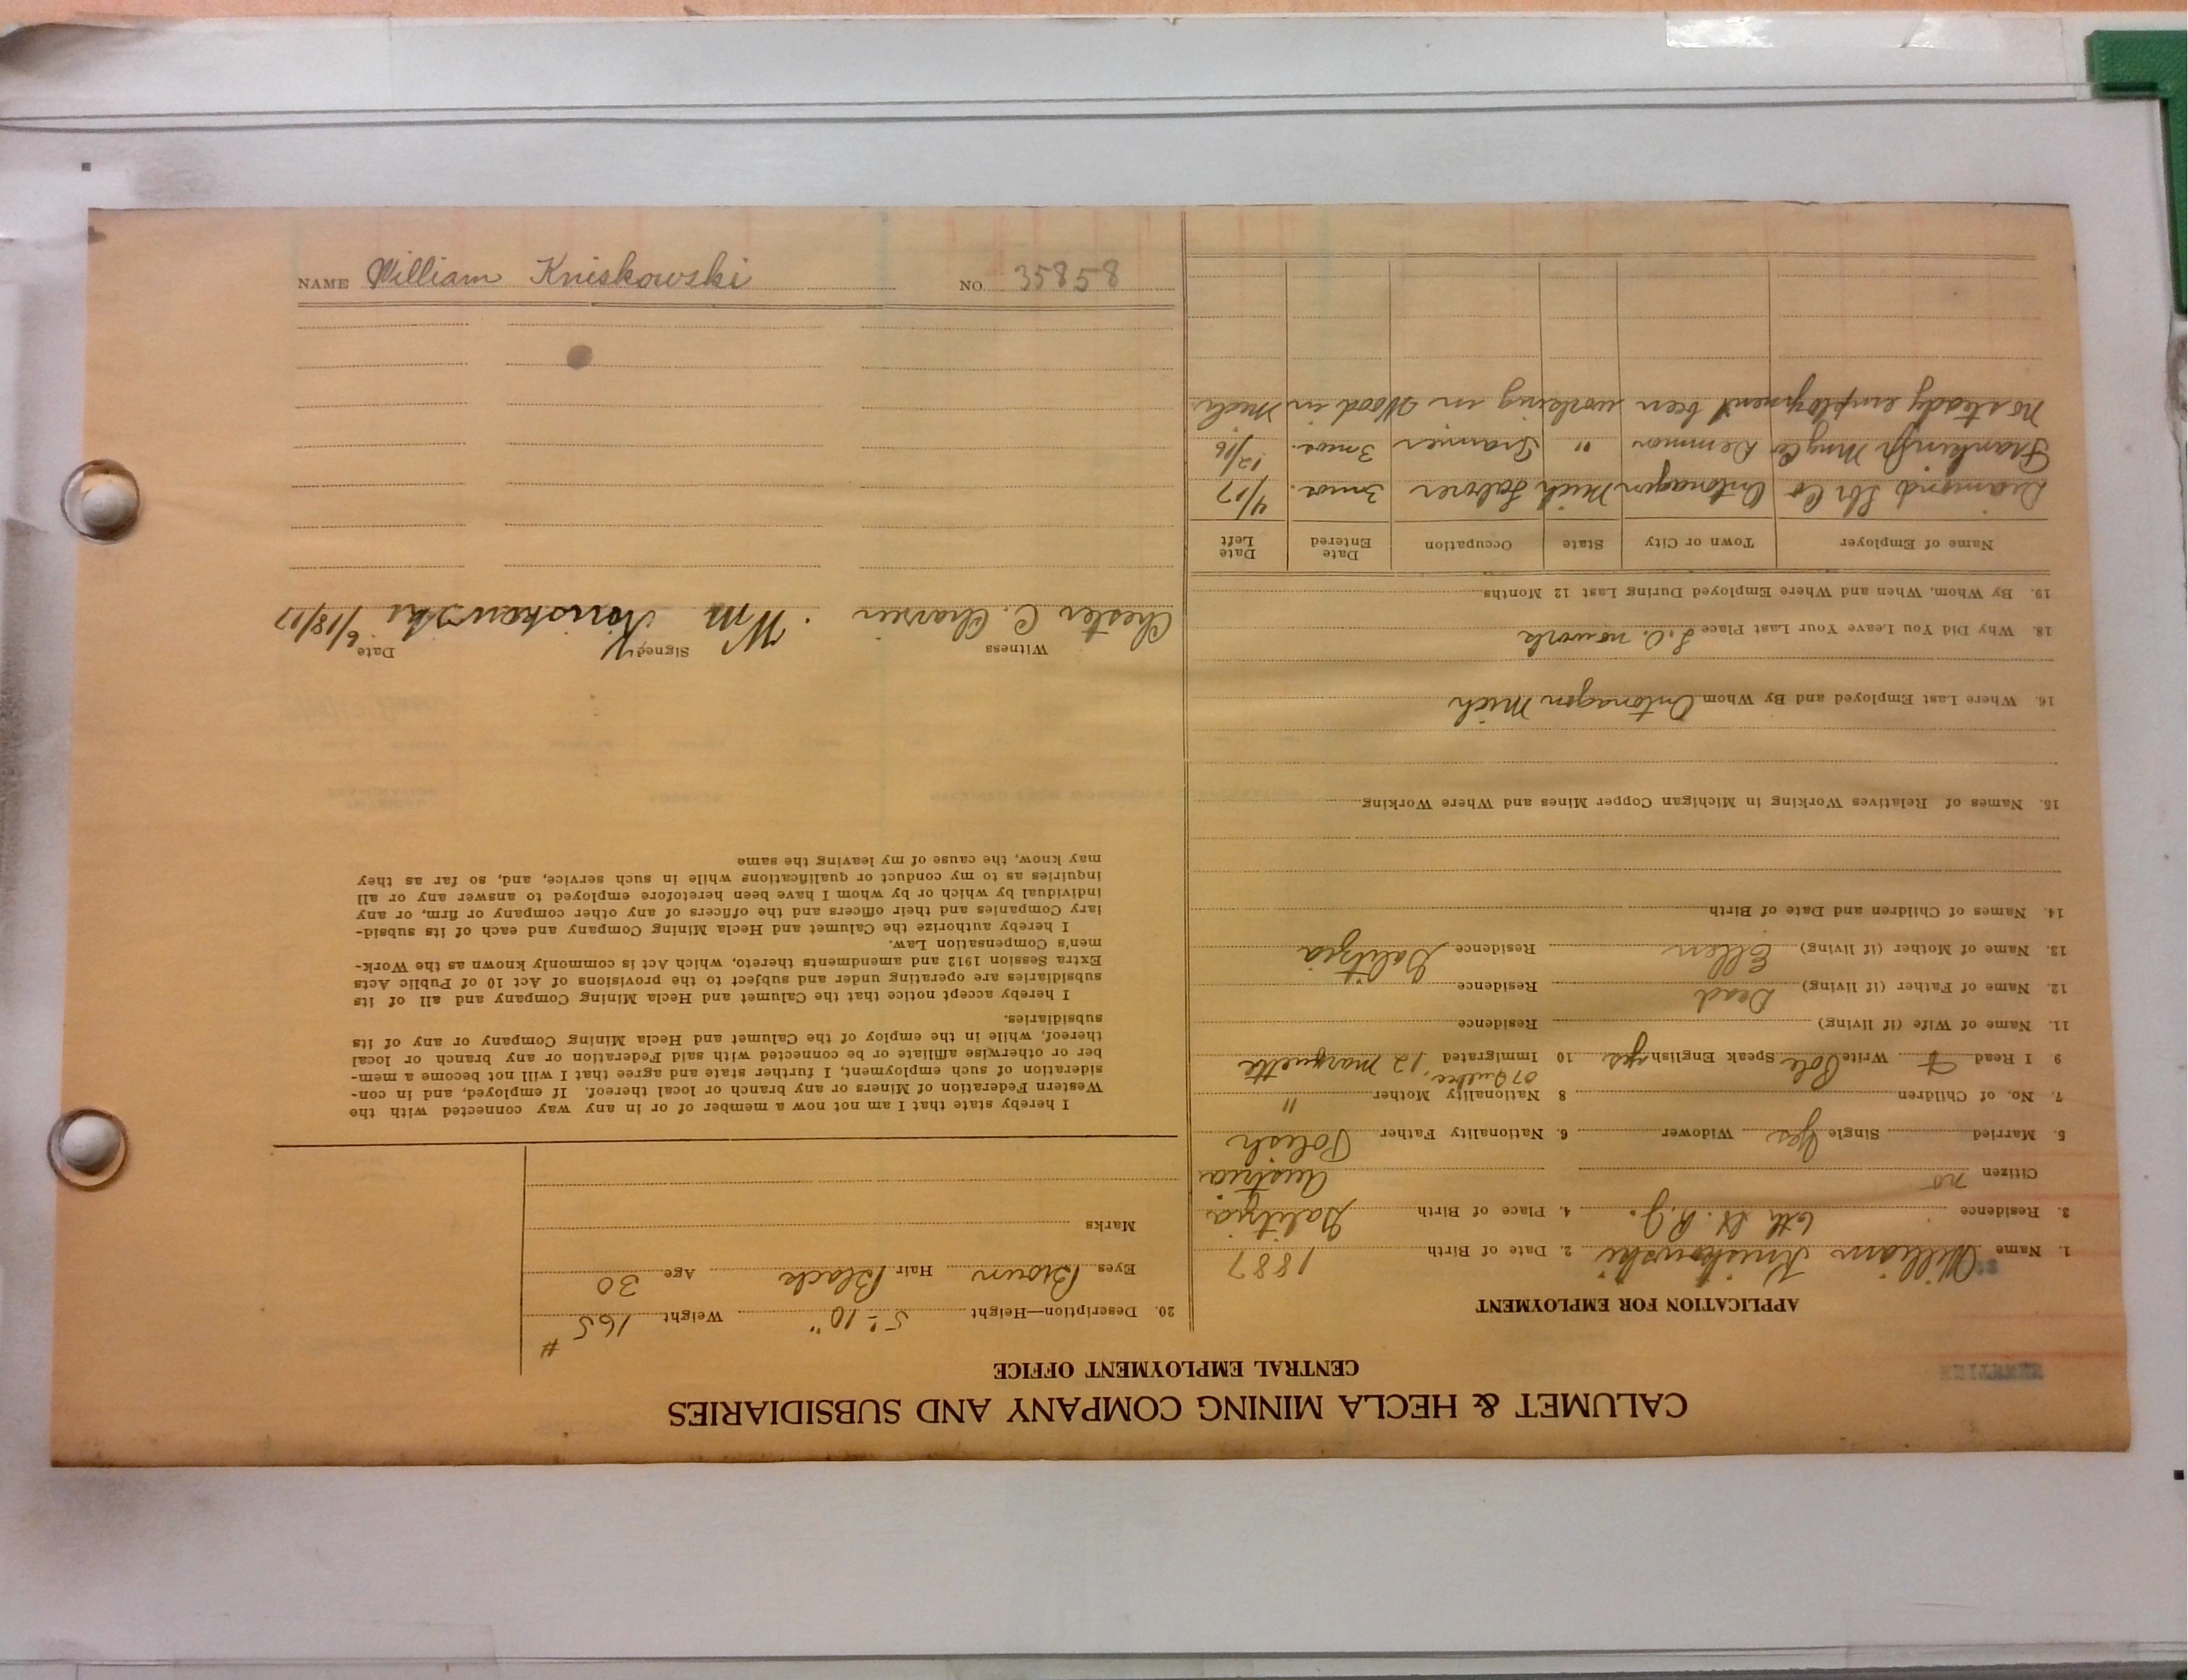 NAME William Kniskowski NO. 35858
CALUMET & HECLA MINING COMPANY AND SUBSIDIARIES
CENTRAL EMPLOYMENT OFFICE
APPLICATION FOR EMPLOYMENT
1. Name William Kniskowski 2. Date of Birth 1887
3. Residence 6th St. R.J. 4. Place of Birth Galitzia
Citizen no Austria
5. Married Single Yes Widower 6. Nationality Father Polish
7. No. of Children 8 Nationality Mother "
07 Quebec,
9 I Read & Write Pole Speak English yes 10 Immigrated 12 marquette
11. Name of Wife (if living) Residence
12. Name of Father (if living) Dead Residence
13. Name of Mother (if living) Ellen Residence Galitzia
14. Names of Children and Date of Birth
15. Names of Relatives Working in Michigan Copper Mines and Where Working
16. Where Last Employed and By Whom Ontonagon Mich
18. Why Did You Leave Your Last Place no work
19. By Whom, When and Where Employed During Last 12 Months
Name of Employer Town or City State Occupation Date Entered Date Left
Diamond Co Ontonagon Mich Laborer 3 mos. 4/17
Franklin Mng Co Demmon " Trammer 3 mos. 12/16
No steady employment been working in Wood in Mich.
20. Description—Height 5'-10" Weight 165 #
Eyes Brown Hair Black Age 30
Marks
I hereby state that I am not now a member of or in any way connected with the
Western Federation of Miners or any branch or local thereof. If employed, and in con-
sideration of such employment, I further state and agree that I will not become a mem-
ber or otherwise affiliate or be connected with said Federation or any branch or local
thereof, while in the employ of the Calumet and Hecla Mining Company or any of its
subsidiaries.
I hereby accept notice that the Calumet and Hecla Mining Company and all of its
subsidiaries are operating under and subject to the provisions of Act 10 of Public Acts
Extra Session 1912 and amendments thereto, which Act is commonly known as the Work-
men's Compensation Law.
I hereby authorize the Calumet and Hecla Mining Company and each of its subsid-
iary Companies and their officers and the officers of any other company or firm, or any
individual by which or by whom I have been heretofore employed to answer any or all
inquiries as to my conduct or qualifications while in such service, and, so far as they
may know, the cause of my leaving the same
Witness Signed Date
Chester C. Wm Kniskowski 6/18/17